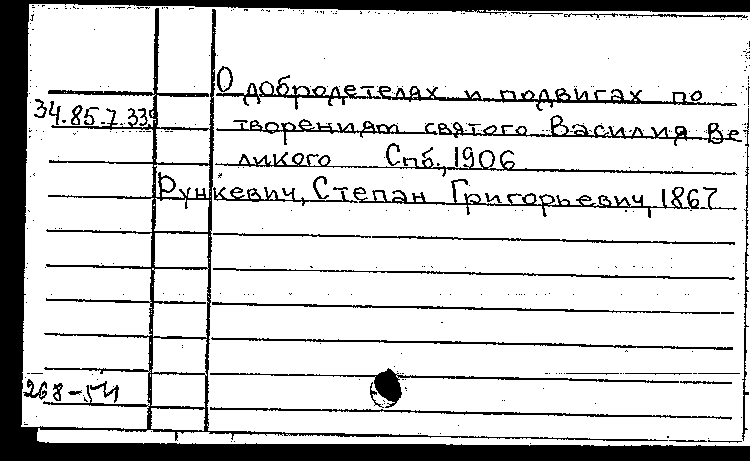 О добродетелях и подвигах по
34.85.7.339
творениям святого Василия Ве
ликого Спб., 1906
Рункевич, Степан Григорьевич, 1867